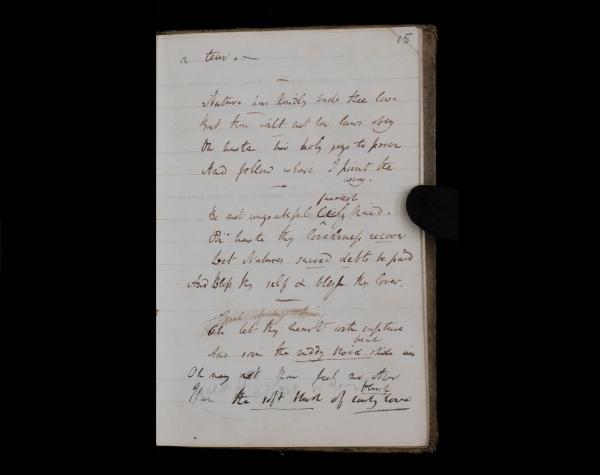 15
a tear
Nature has kindly bade thee love
But thou wilt not her laws obey
Oh haste his holy joys to prove
And follow where I point the
way.
fairest
Be not ungrateful Maid.
haste thy loveliness
Let Natures sacred debts be paid
And Bless thy self & bless thy lover.
Oh let thy heart with rapture
beat
And soon the ruddy blood
Oh may not feel no other
blush
the soft blush of early love